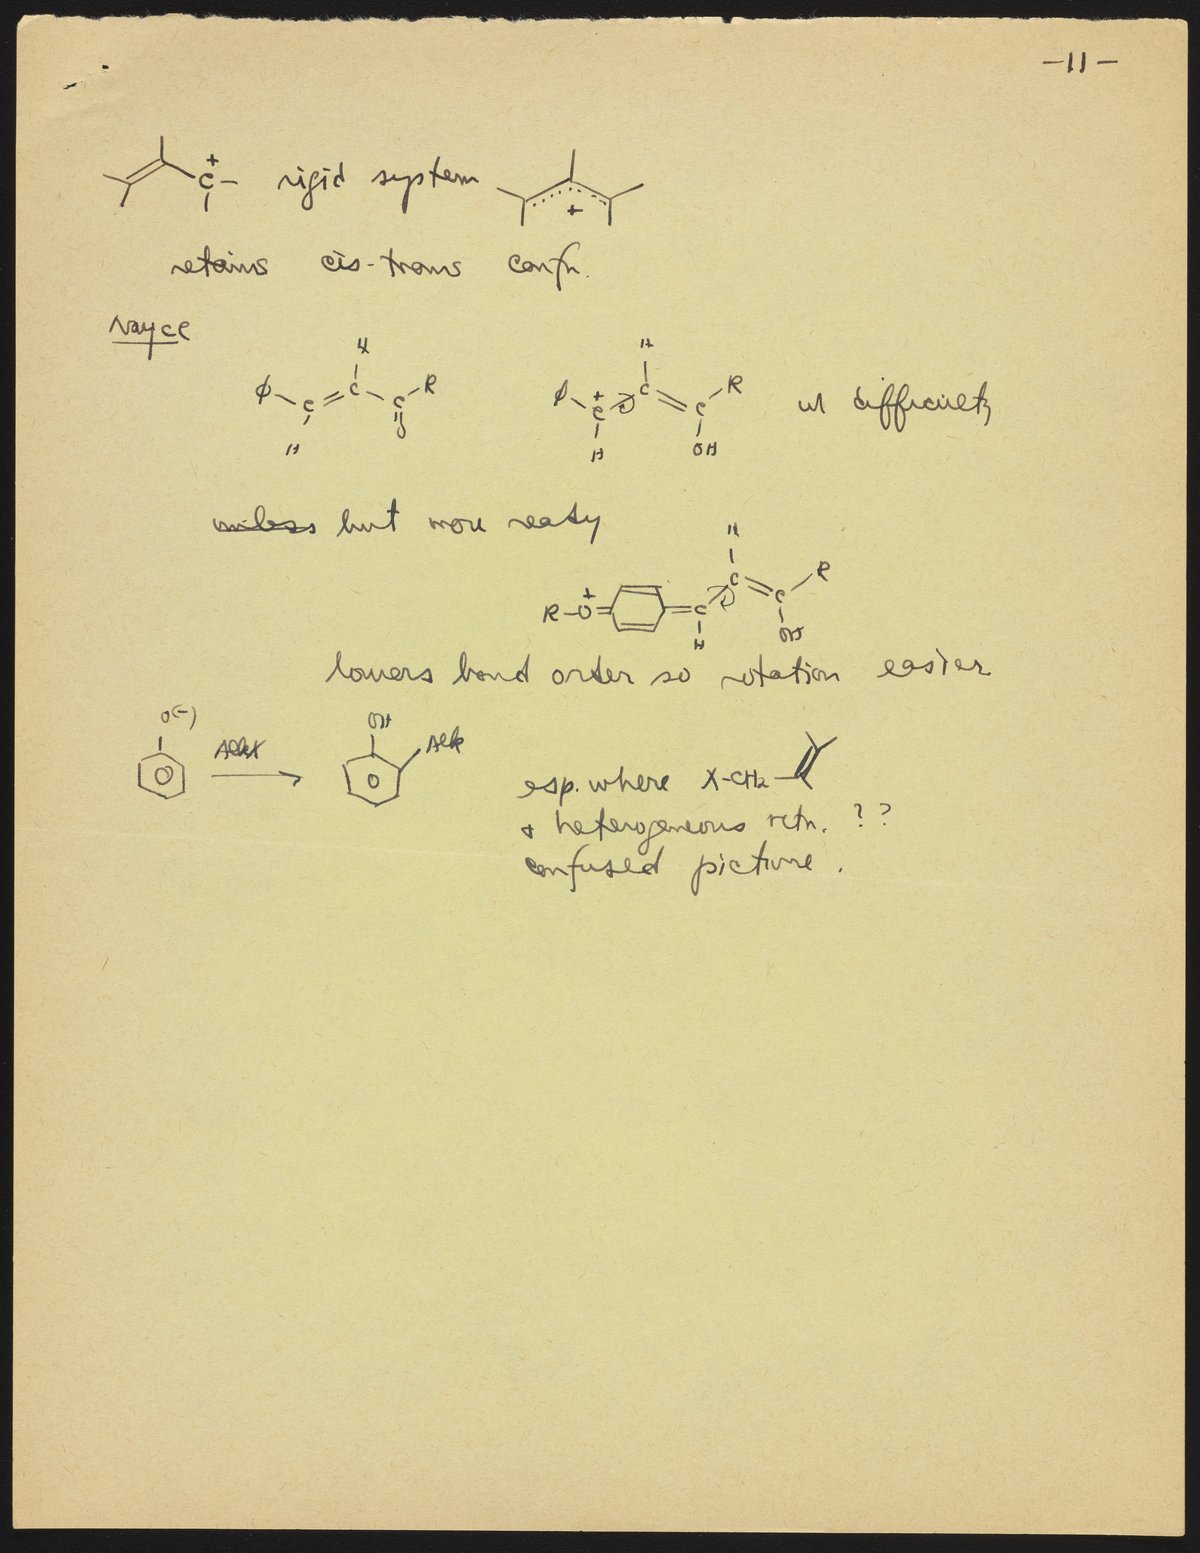 -11-
C+ rigid system +
retains cis-trans confn.
Noyce
H H
Φ C C C R Φ C+ C C R w difficulty
H O H OH
unless but more ready
H
R-O+ C C C R
H OH
lowers bond order so rotation easier
O(-) OH
AlkX Alk
esp. where X-CH2
& heterogeneous rctn. ??
confused picture.